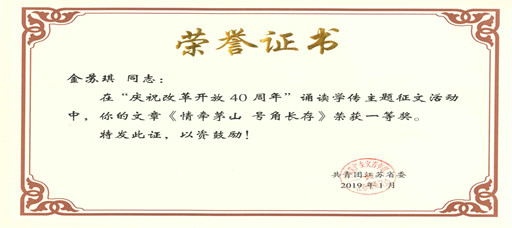 荣誉证书
金苏琪 同志：
在“庆祝改革开放40周年”诵读学传主题征文活动
中，你的文章《情牵茅山 号角长存》荣获一等奖。
特发此证，以资鼓励！
共青团江苏省委
2019年1月